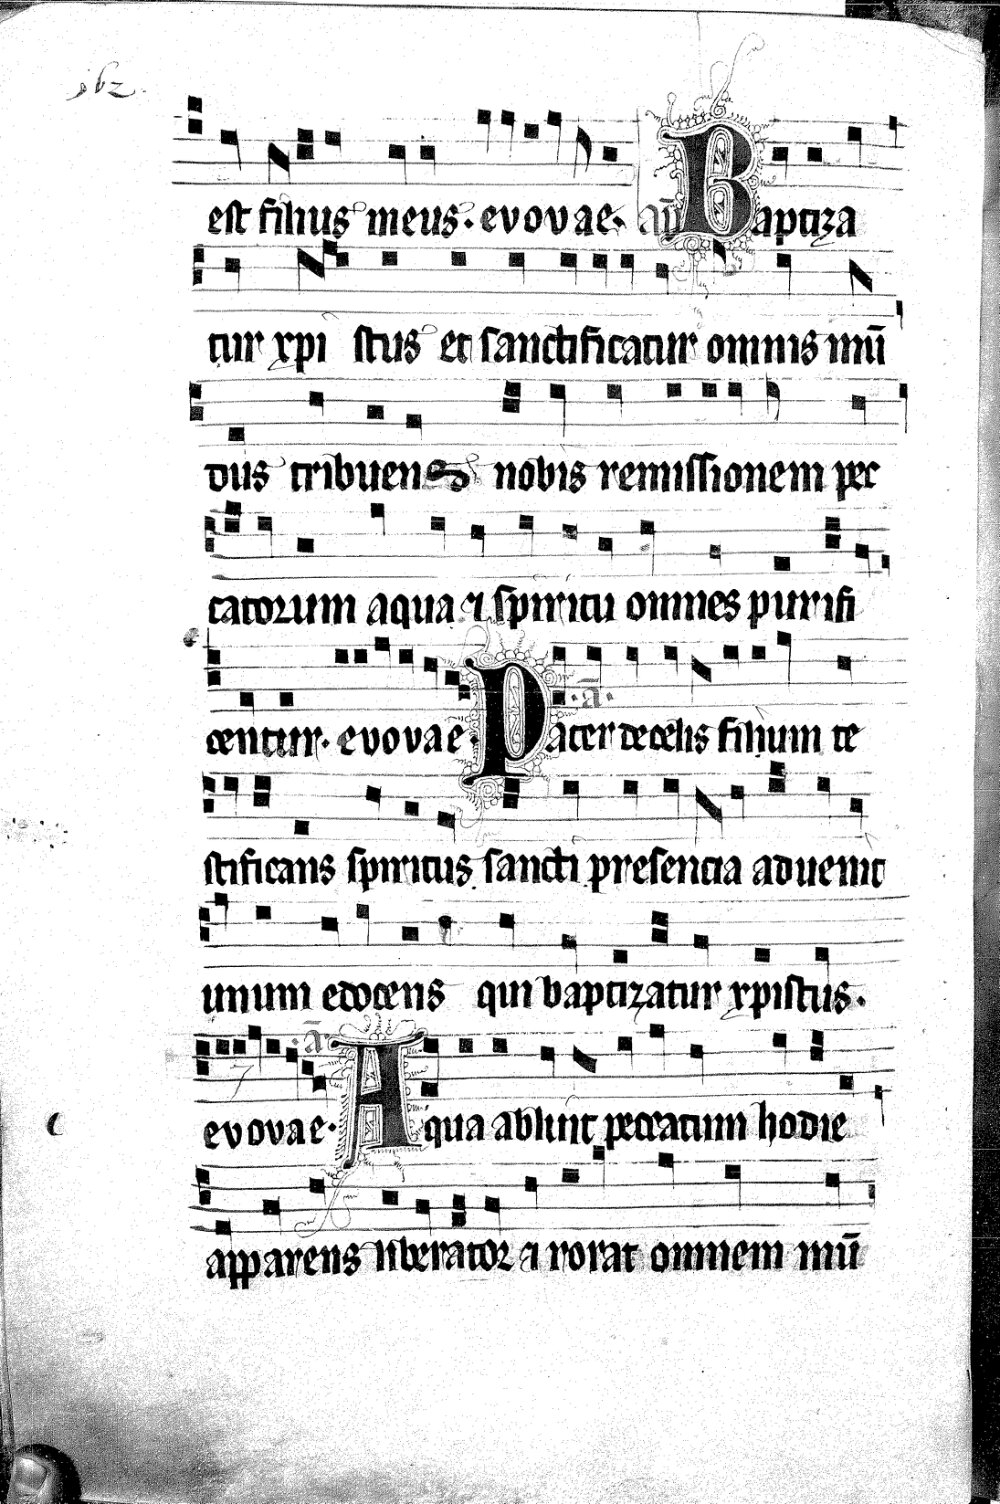 162.
est filius meus. evovae. añ Baptiza
tur xpi stus et sanctificatur omnis mū
dus tribuens nobis remissionem pec
catorum aqua ⁊ spiritu omnes purifi
centur. evovae. ā. Pater de celis filium te
stificans spiritus sancti presencia advenit
unum edocens qui baptizatur xpistus.
evovae. ā. Aqua abluit peccatum hodie
apparens liberator ⁊ rorat omnem mū